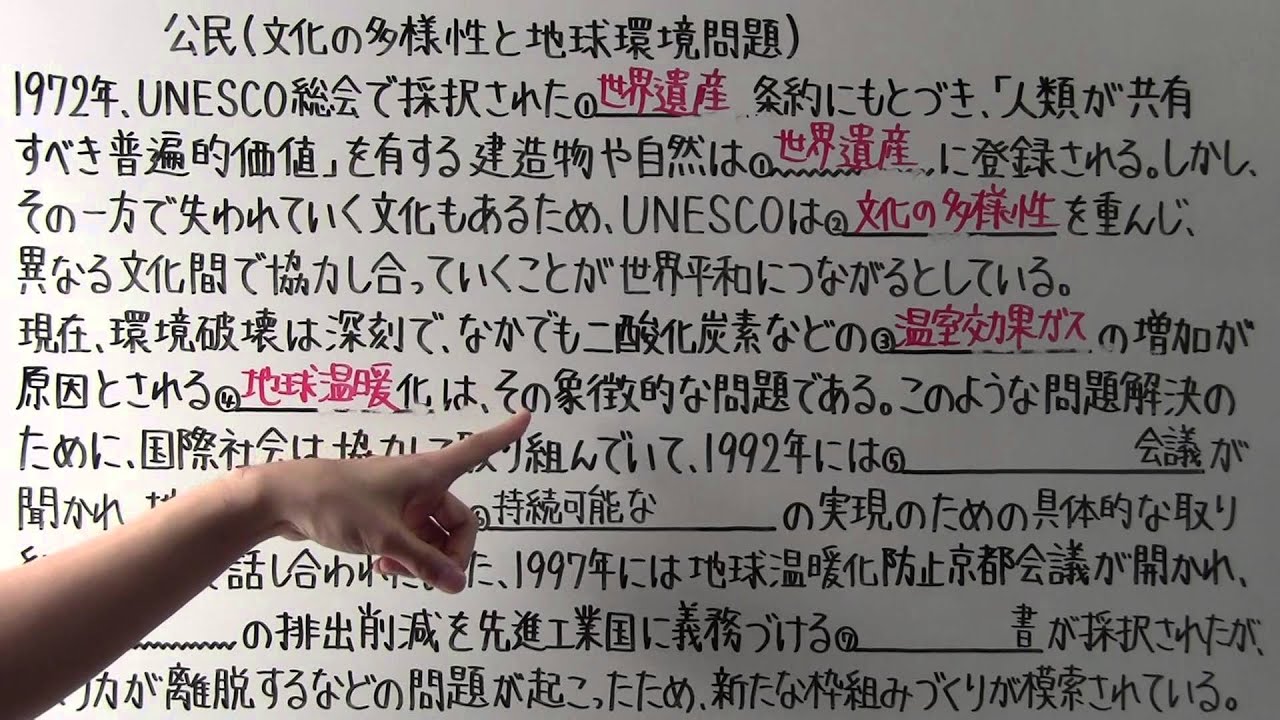 公民(文化の多様性と地球環境問題)
1972年、UNESCO総会で採択された①世界遺産条約にもとづき、「人類が共有
すべき普遍的価値」を有する建造物や自然は①世界遺産に登録される。しかし、
その一方で失われていく文化もあるため、UNESCOは②文化の多様性を重んじ、
異なる文化間で協力し合っていくことが世界平和につながるとしている。
現在、環境破壊は深刻で、なかでも二酸化炭素などの③温室効果ガスの増加が
原因とされる④地球温暖化は、その象徴的な問題である。このような問題解決の
ために、国際社会は協力して取り組んでいて、1992年には⑤ 会議が
聞かれ 持続可能な の実現のための具体的な取り
話し合われた 、1997年には地球温暖化防止京都会議が開かれ、
の排出削減を先進工業国に義務づける⑦ 書が採択されたが、
リカが離脱するなどの問題が起こったため、新たな枠組みづくりが模索されている。